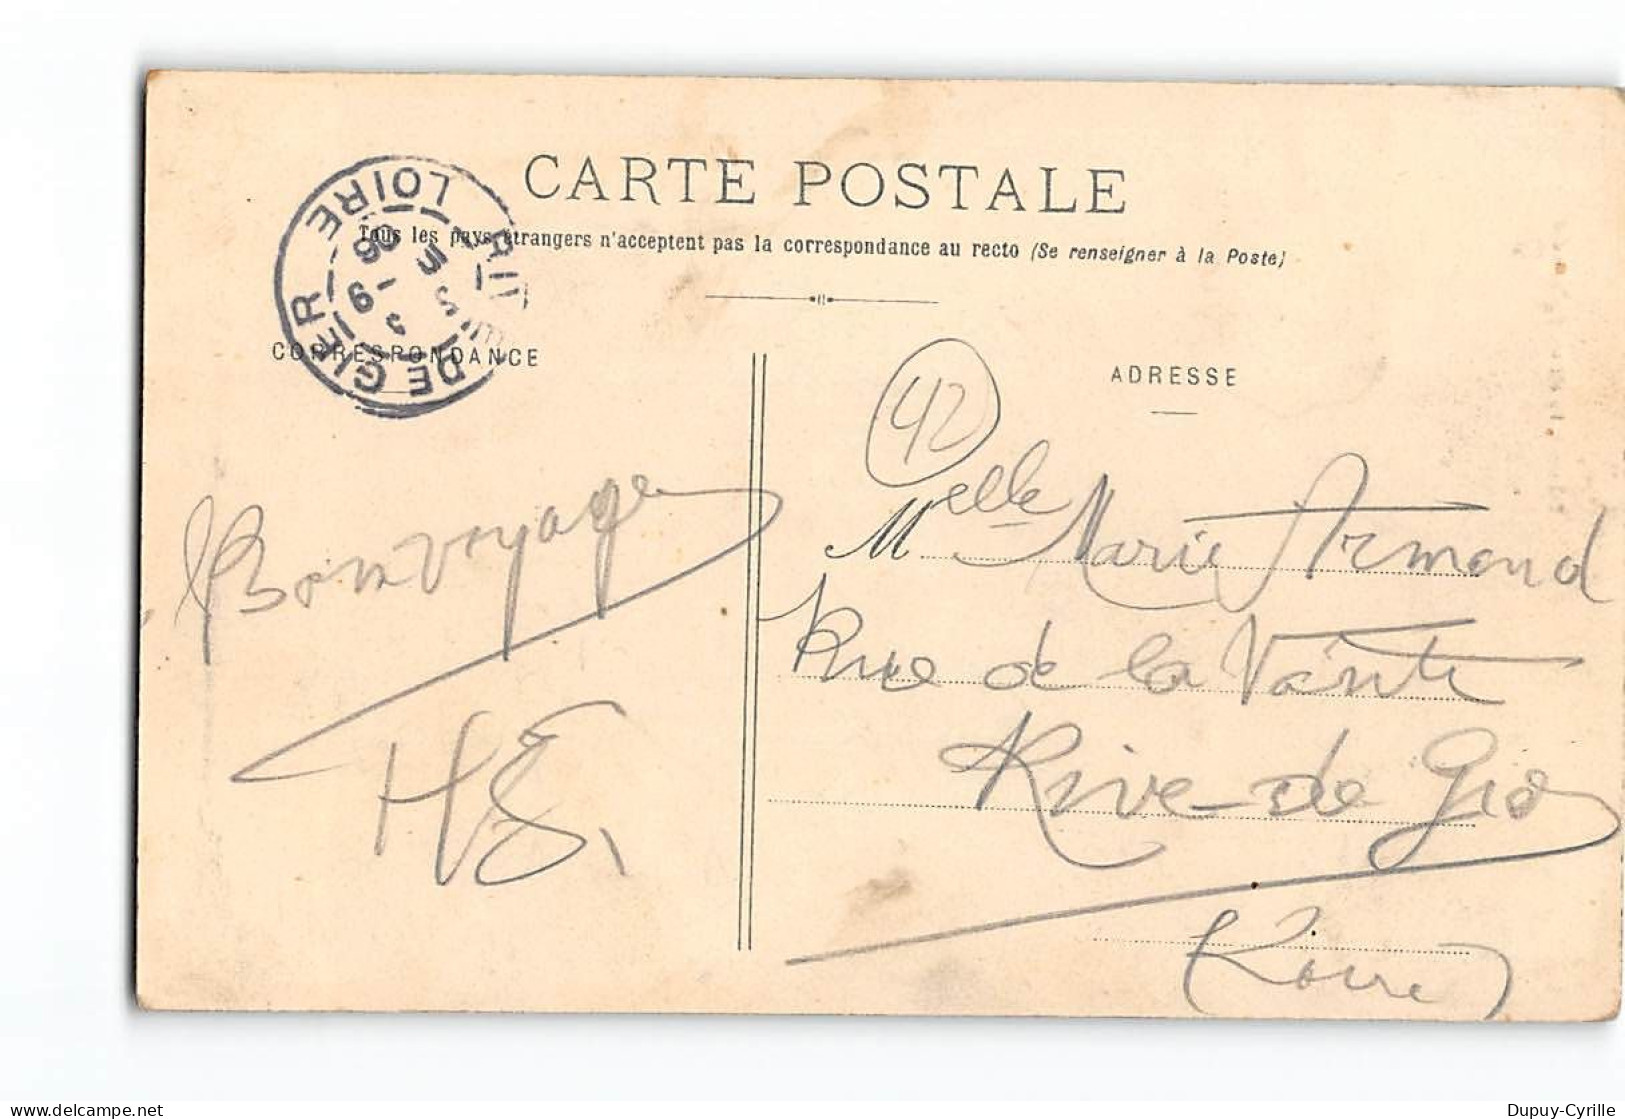 CARTE POSTALE
Tous les pays étrangers n'acceptent pas la correspondance au recto (Se renseigner à la Poste)
RIVE DE GIER
LOIRE
CORRESPONDANCE
ADRESSE
42
Bon voyage
HS
Melle Marie Armand
Rue de la
Rive-de Gier
Loire
Dupuy-Cyrille